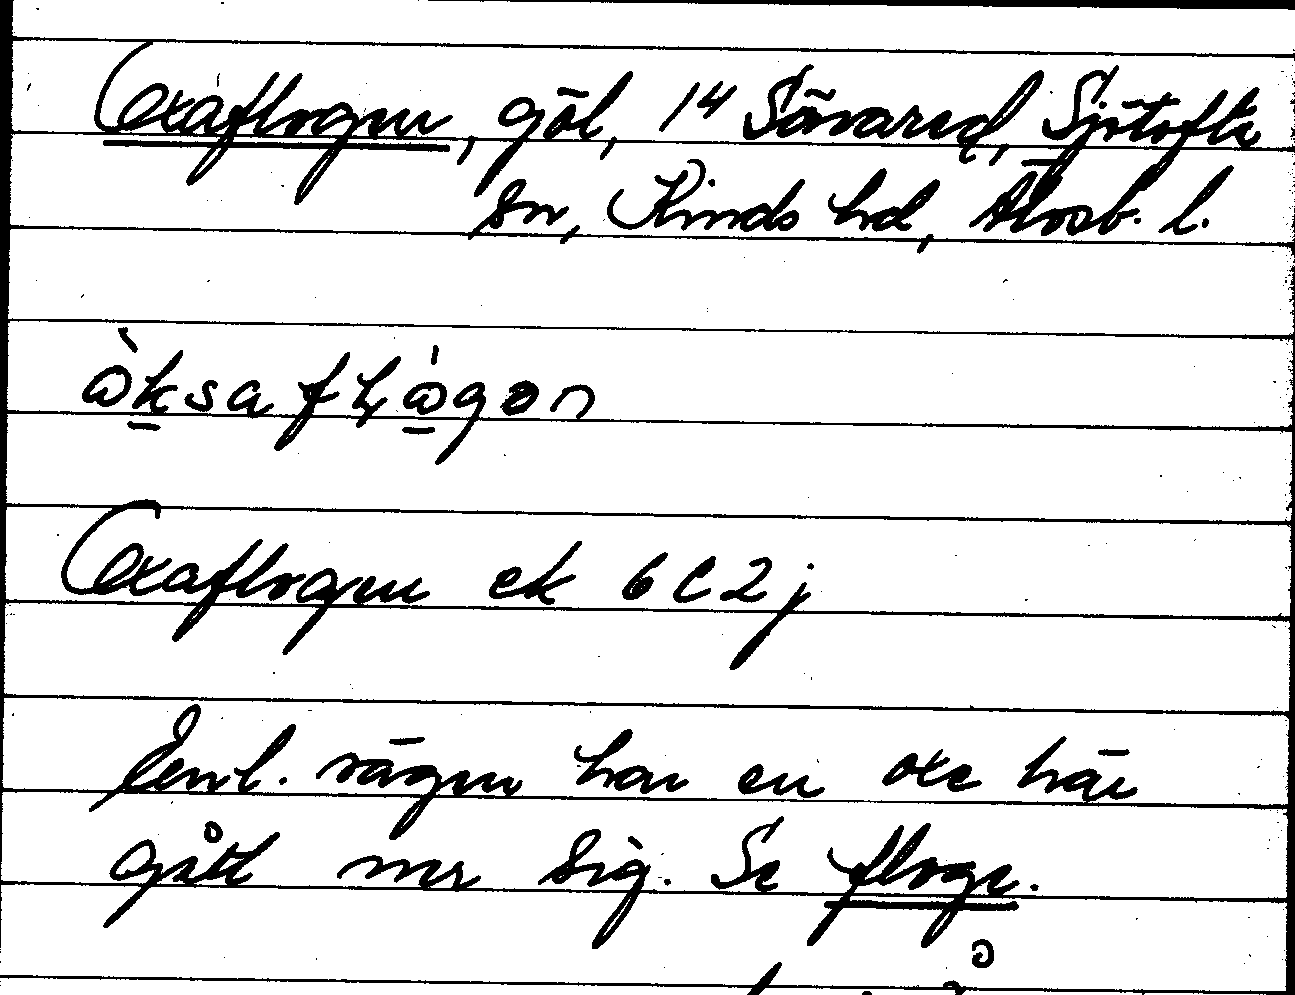 Oxaflogen, göl, 14 Sävared, Sjötofta
sn, Kinds hd, Älvsb. l.
Oxaflogen ek 6C2j
Enl. sägen har en oxe här
gått ner sig. Se floge.